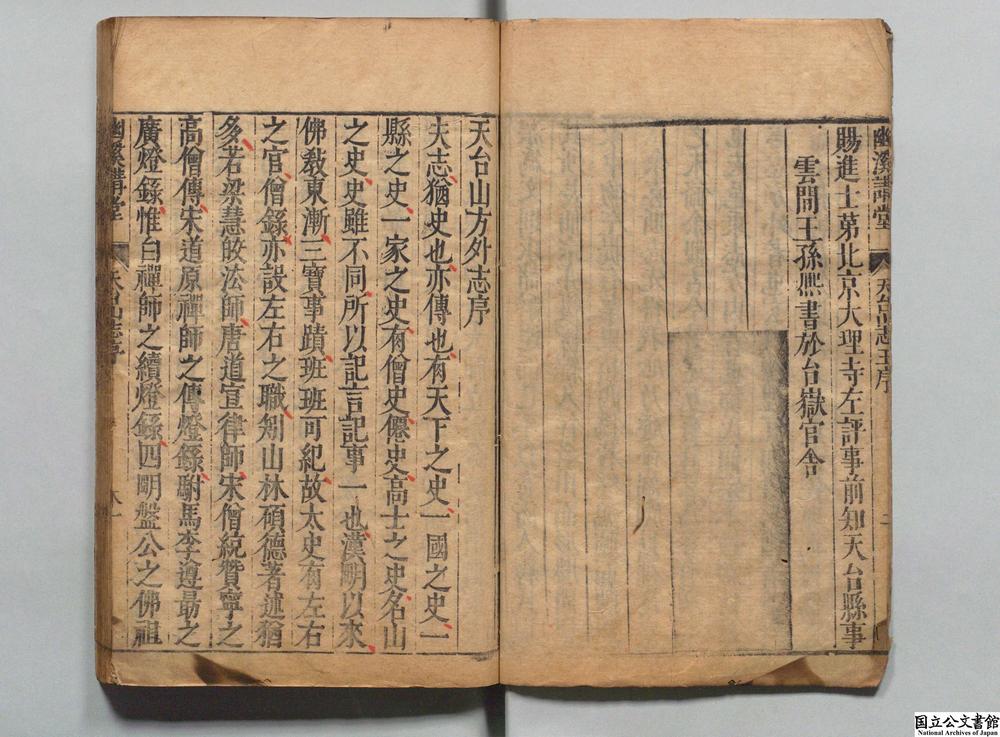 幽溪講堂 天台山志王序 二
賜進士第北京大理寺左評事前知天台縣事
雲間王孫熙書於台嶽官舍
天台山方外志序
夫志猶史也亦傳也有天下之史一國之史一
縣之史一家之史有僧史僊史高士之史名山
之史史雖不同所以記言記事一也漢明以來
佛敎東漸三寶事蹟班班可紀故太史有左右
之官僧錄亦設左右之職矧山林碩德著述猶
多若梁慧皎法師唐道宣律師宋僧統贊寧之
高僧傳宋道原禪師之傳燈錄駙馬李遵最之
廣燈錄惟白禪師之續燈錄四明盤公之佛祖
幽溪講堂 天台山志序
国立公文書館
National Archives of Japan